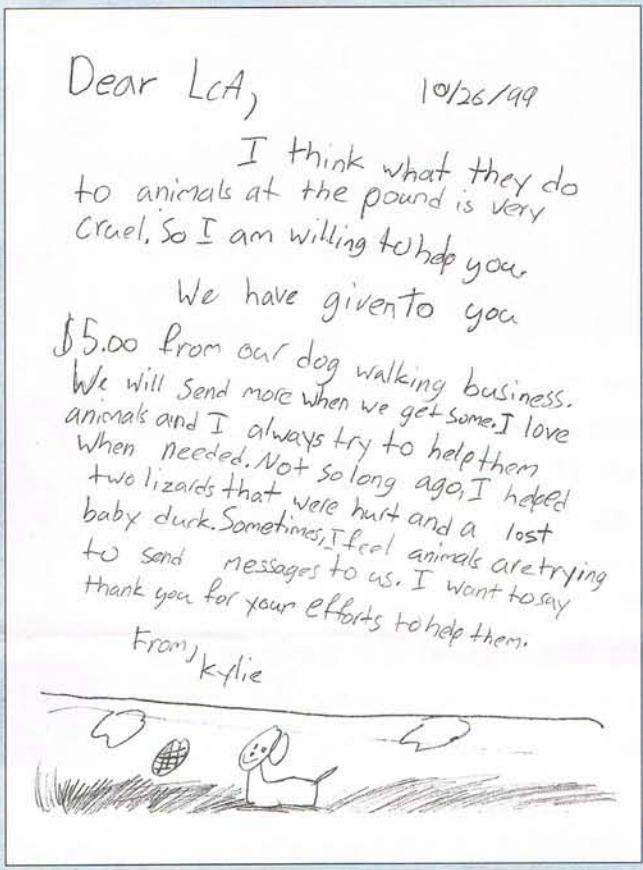 Dear LCA,
10/26/99
I think what they do
to animals at the pound is very
cruel. So I am willing to help you.
We have given to you
$5.00 from our dog walking business.
We will send more when we get some. I love
animals and I always try to help them
when needed. Not so long ago, I helped
two lizards that were hurt and a lost
baby duck. Sometimes, I feel animals are trying
to send messages to us. I want to say
thank you for your efforts to help them.
From,
Kylie